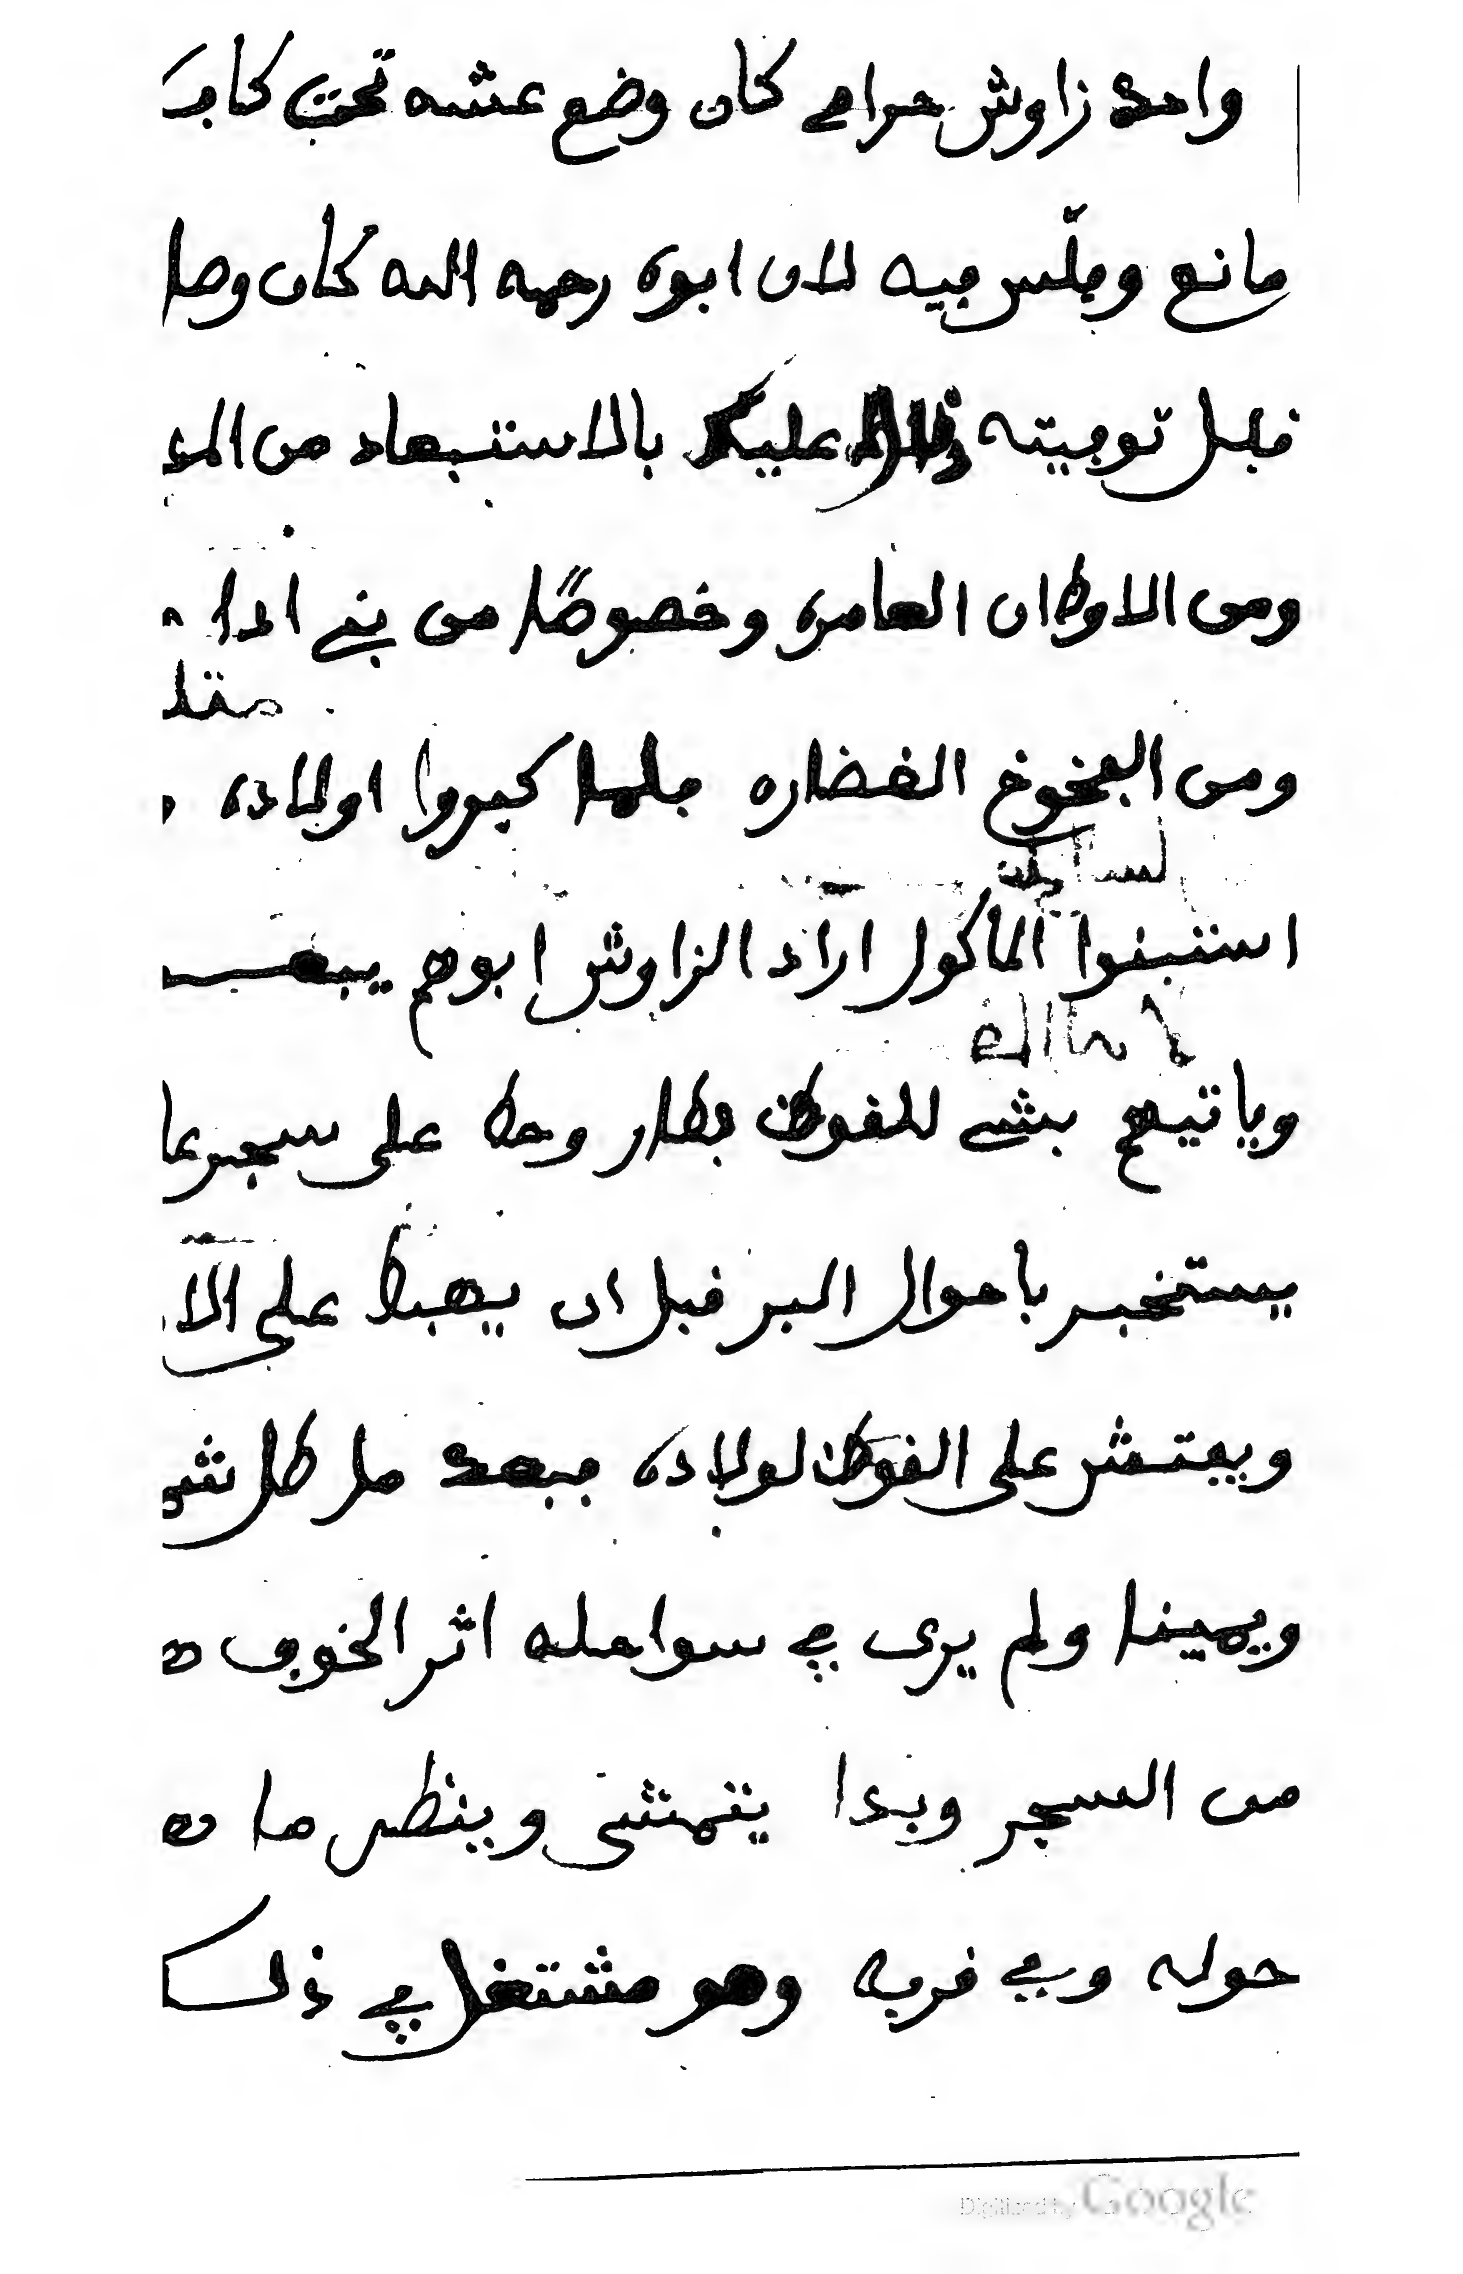 واحد زاوش حرامي كان وضع عشه تحت كاف
مانع وجلس فيه لان ابوه رحمه الله كان وصا
قبل توفيته عليك بالاستبعاد من المد
ومن الاوطان العامره وخصوصًا من بني ادا
ومن الفخوخ الغضاره فلما كبروا اولاده
استبنوا المأكول اراد الزاوش ابوهم
وياتيهم بشي للقوت فطار وحط على سجر عا
يستخبر باحوال البر قبل ان يهبط على الا
ويفتش على القوت لولاده فبعد ما طل شي
ويمينا ولم يرى في سواحله اثر الخوف
من السجر وبدا يتمشى وينظر ما
حوله وفي قربه وهو مشتغل في ذلك
Digitized by Google